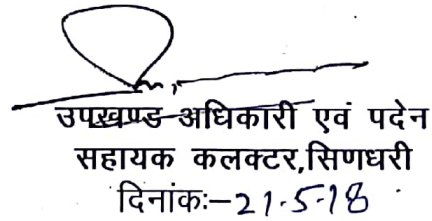 उपखण्ड अधिकारी एवं पदेन
सहायक कलक्टर,सिणधरी
दिनांकः–21.5.18